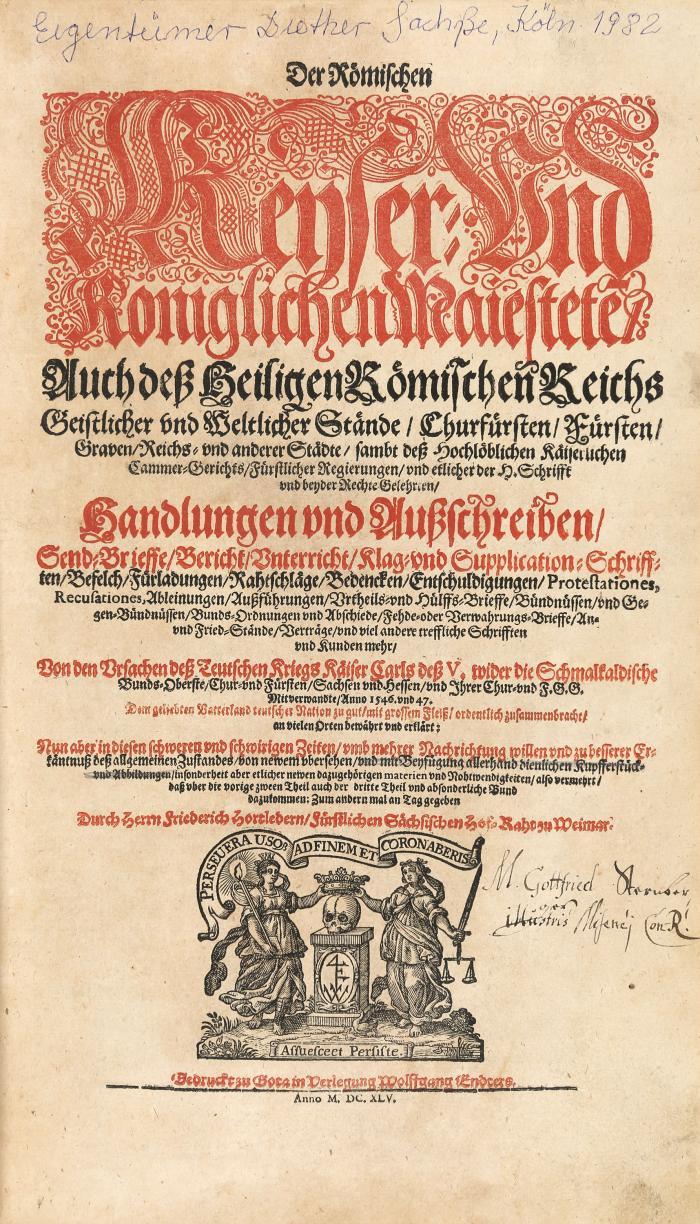 Eigentümer Diether Sachße, Köln 1982
Der Römischen
Keyser- Vnd
Königlichen Maiestete/
Auch deß Heiligen Römischen Reichs
Geistlicher vnd Weltlicher Stände / Churfürsten / Fürsten /
Graven / Reichs- vnd anderer Städte / sambt deß Hochlöblichen Käiserlichen
Cammer-Gerichts / Fürstlicher Regierungen / vnd etlicher der H. Schrifft
vnd beyder Rechte Gelehrten /
Handlungen vnd Außschreiben /
Send-Brieffe / Bericht / Vnterricht / Klag- vnd Supplication-Schriff-
ten / Befelch / Fürladungen / Rahtschläge / Bedencken / Entschuldigungen / Protestationes,
Recusationes, Ableinungen / Außführungen / Vrtheils- vnd Hülffs-Brieffe / Bündnüssen / vnd Ge-
gen-Bündnüssen / Bunds-Ordnungen vnd Abschiede / Fehde- oder Verwahrungs-Brieffe / An-
vnd Fried-Stände / Verträge / vnd viel andere treffliche Schrifften
vnd Kunden mehr /
Von den Vrsachen deß Teutschen Kriegs Käiser Carls deß V, wider die Schmalkaldische
Bunds-Oberste / Chur- vnd Fürsten / Sachsen vnd Hessen / vnd Ihrer Chur- vnd F. G. G.
Mitverwandte / Anno 1546. vnd 47.
Dem geliebten Vatterland teutscher Nation zu gut / mit grossem Fleiß / ordentlich zusammenbracht /
an vielen Orten bewährt vnd erklärt:
Nun aber in diesen schweren vnd schwirigen Zeiten / vmb mehrer Nachrichtung willen vnd zu besserer Er-
käntnuß deß allgemeinen Zustandes / von newem vbersehen / vnd mit Beyfügung allerhand dienlichen Kupfferstück-
vnd Abbildungen / insonderheit aber etlicher newen dazugehörigen materien vnd Nohtwendigkeiten / also vermehrt /
daß vber die vorige zween Theil auch der dritte Theil vnd absonderliche Bund
dazukommen: Zum andern mal an Tag gegeben
Durch Herrn Friederich Hortledern / Fürstlichen Sächsischen Hof-Raht zu Weimar.
PERSEVERA USQ AD FINEM ET CORONABERIS
M. Gottfried
Assuescect Persiste.
Gedruckt zu Gota in Verlegung Wolffgang Endters.
Anno M. DC. XLV.